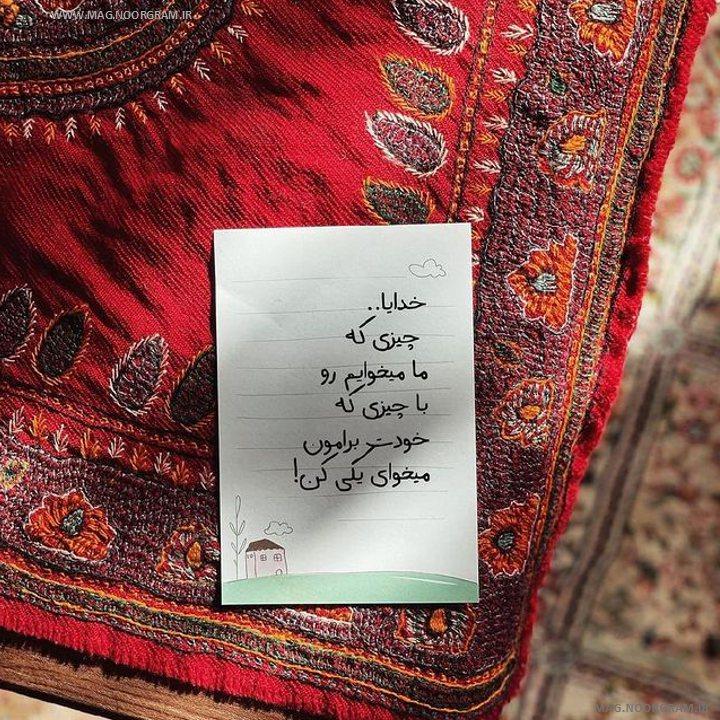 WWW.MAG.NOORGRAM.IR
خدایا..
چیزی که
ما میخوایم رو
با چیزی که
خودت برامون
میخوای یکی کن!
MAG.NOORGRAM.IR